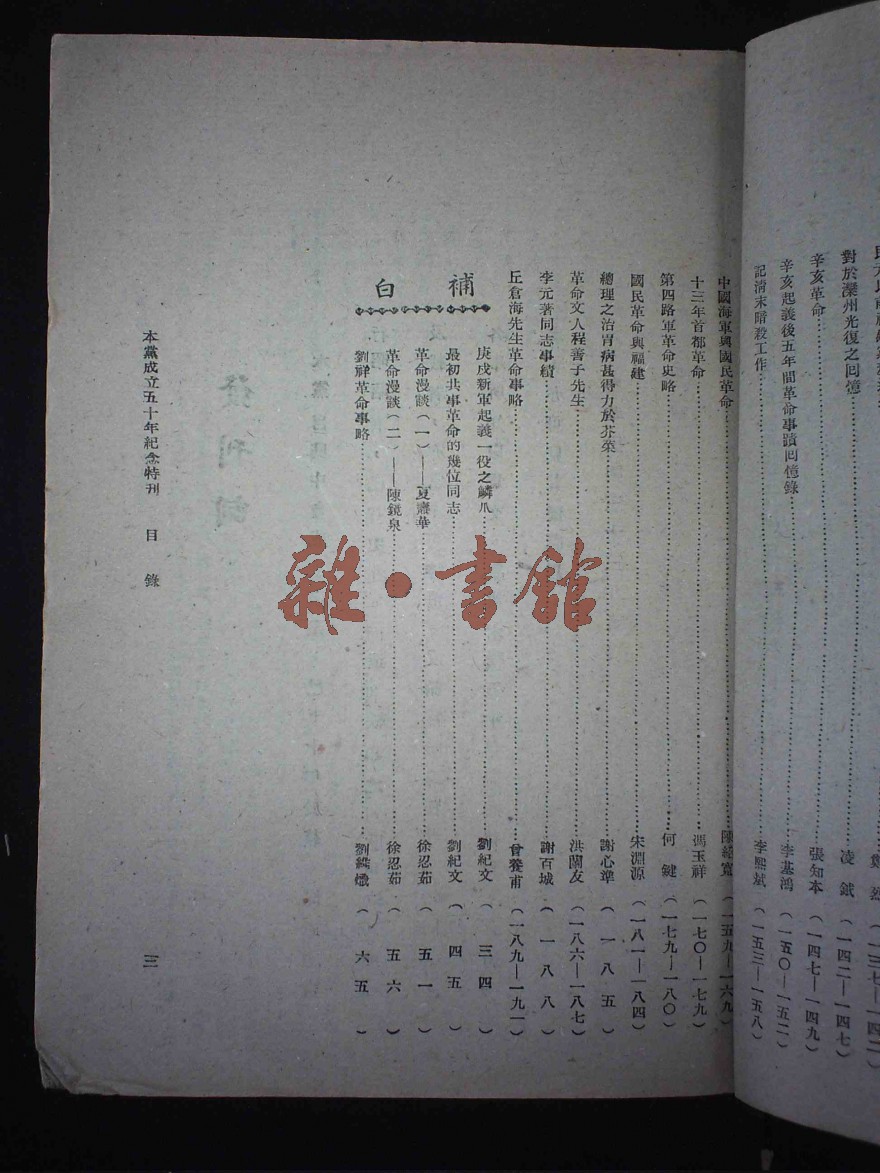 對於灤州光復之回憶……凌鉞（一四二—一四七）
辛亥革命……張知本（一四七—一四九）
辛亥起義後五年間革命事蹟回憶錄……李基鴻（一五〇—一五二）
記清末暗殺工作……李熙斌（一五三—一五八）
中國海軍與國民革命……陳紹寬（一五九—一六九）
十三年首都革命……馮玉祥（一七〇—一七九）
第四路軍革命史略……何鍵（一七九—一八〇）
國民革命與福建……宋淵源（一八一—一八四）
總理之治胃病甚得力於芥菜……謝心準（一八五）
革命文人程善子先生……洪蘭友（一八六—一八七）
李元著同志事績……謝百城（一八八）
丘倉海先生革命事略……曾養甫（一八九—一九一）
補白
庚戌新軍起義一役之鱗爪……劉紀文（三四）
最初共事革命的幾位同志……劉紀文（四五）
革命漫談（一）——夏壽華……徐忍茹（五一）
革命漫談（二）——陳鏡泉……徐忍茹（五六）
劉祥革命事略……劉（六五）
本黨成立五十年紀念特刊 目錄
三
雜·書館